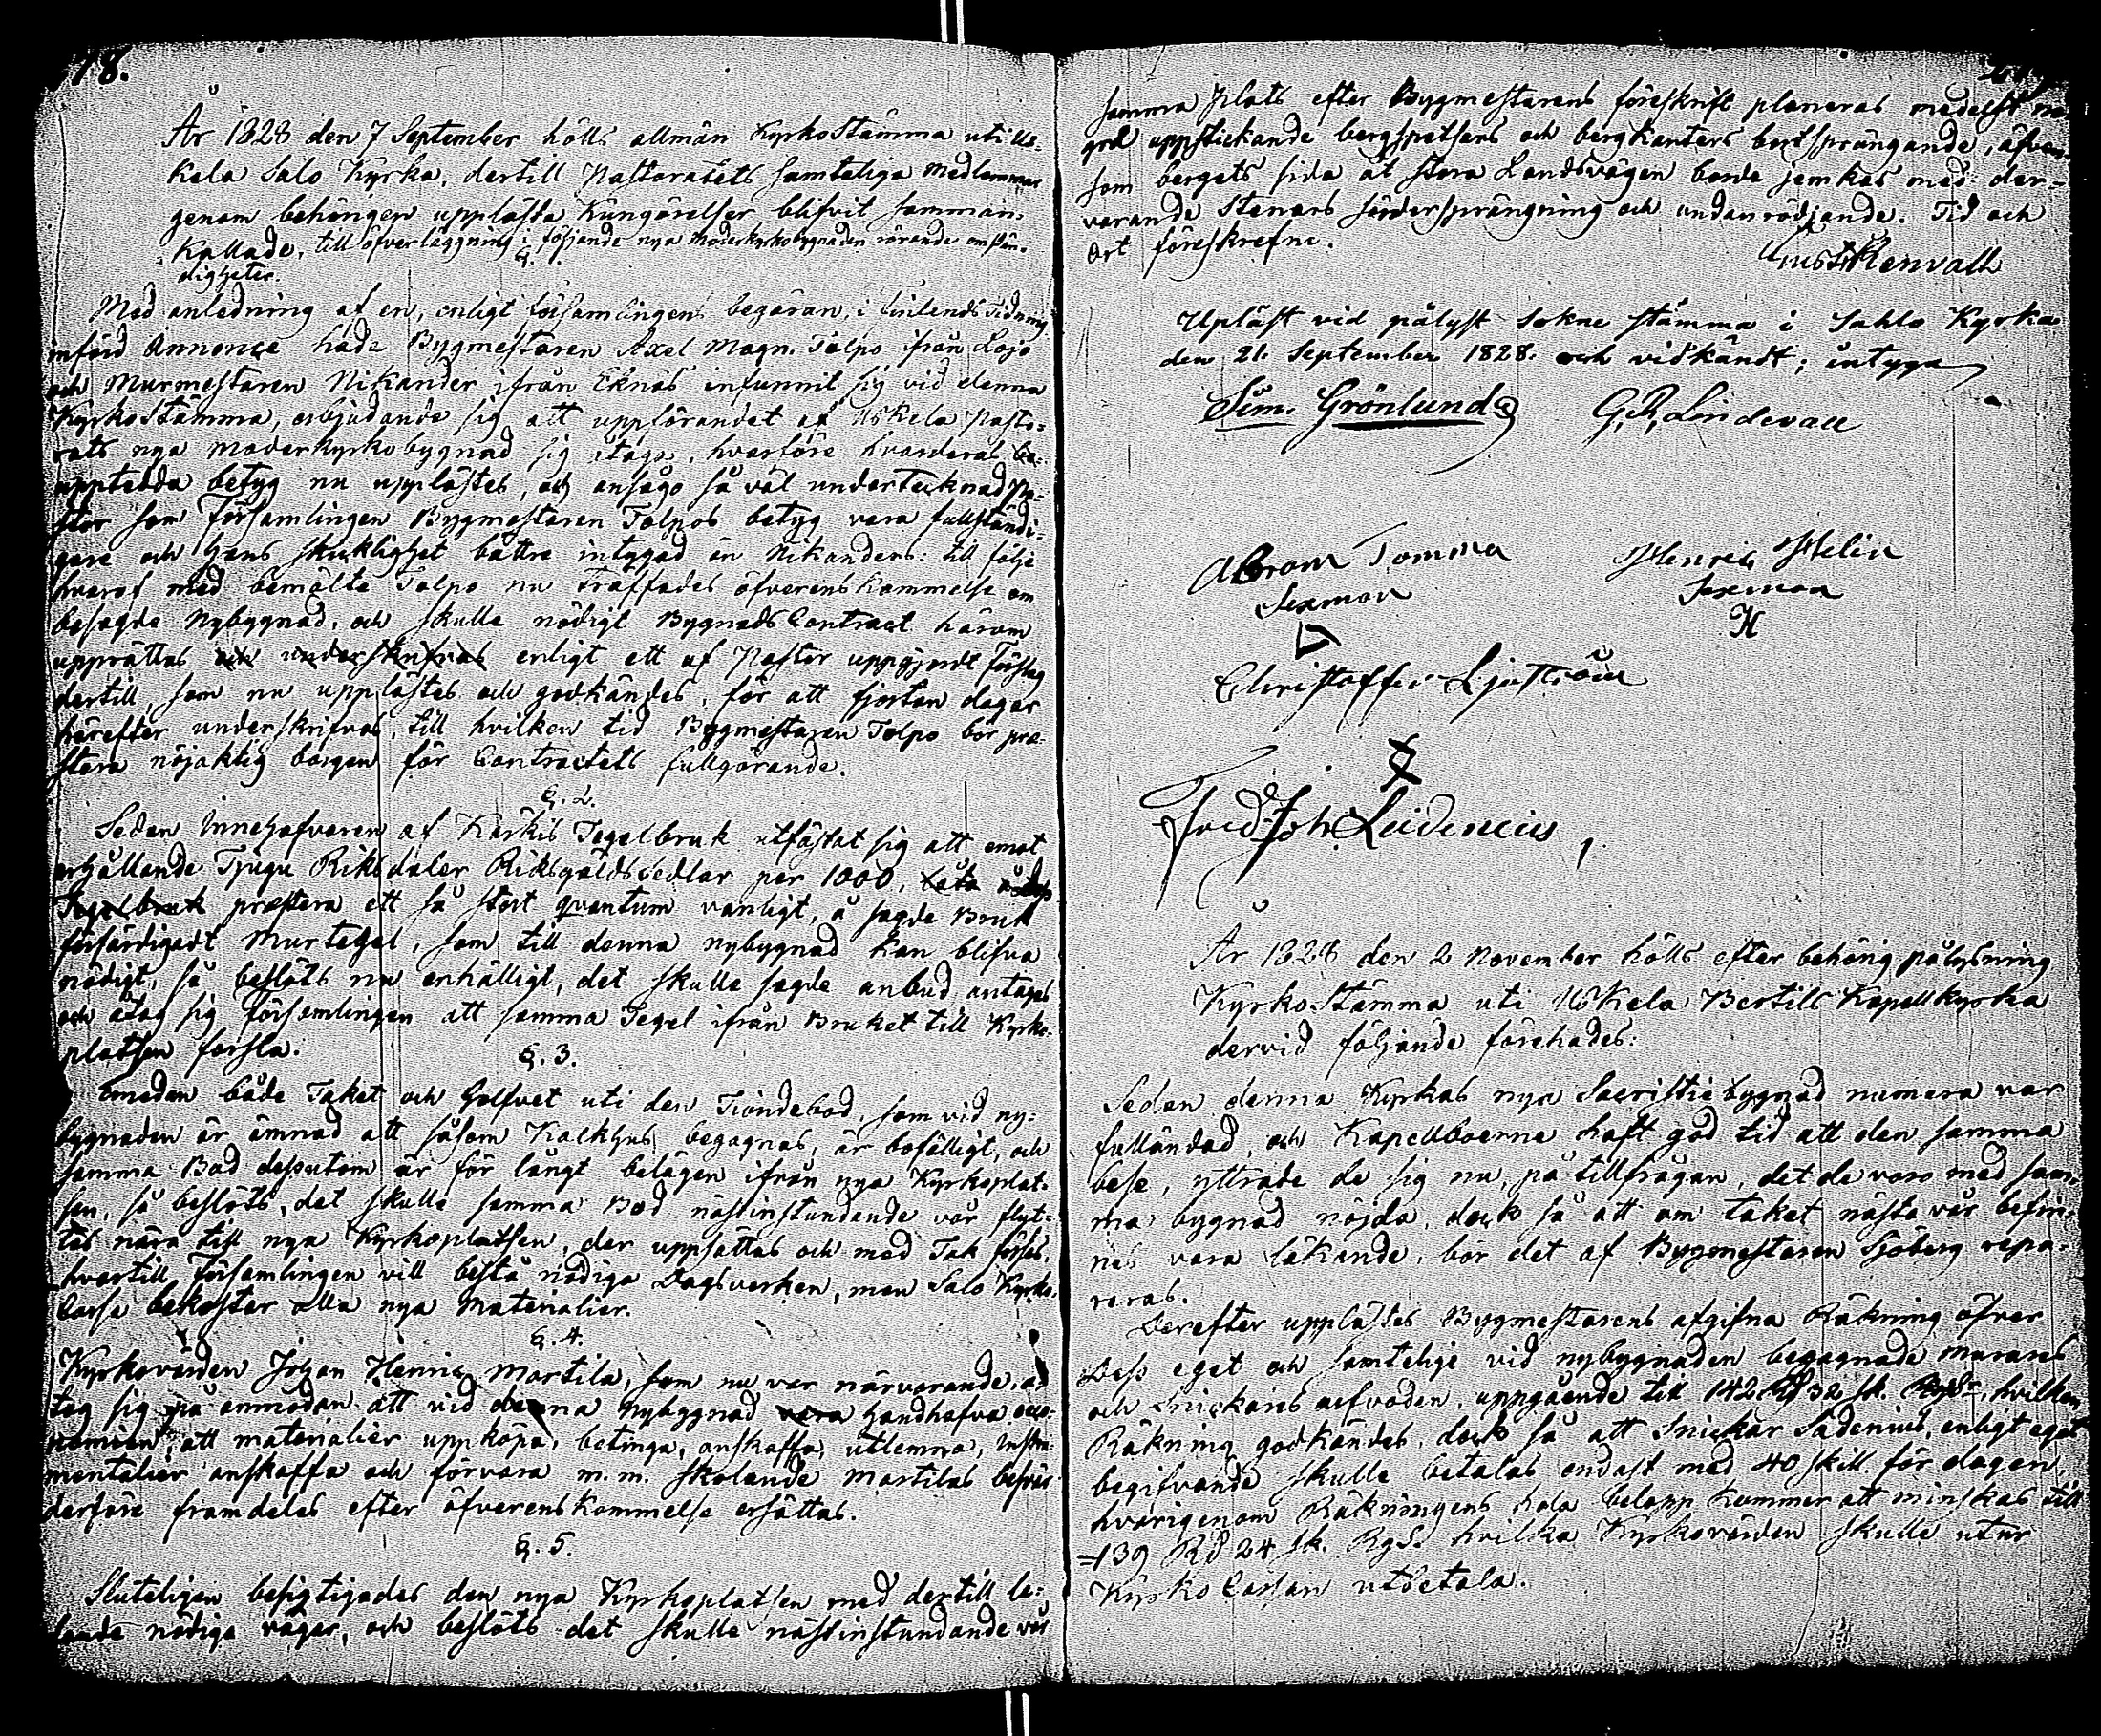 78.
År 1828 den 7 September hölls allmän Kyrkostämma uti Us-
kela Salo Kyrka, dertill Pastoratets samteliga medlemmar
genom behörigen upplästa Kungörelser blifvit samman-
kallade, till öfverläggning i följande nya Moderkyrkobygnaden rörande omstän-
digheter.
§. 1.
Med anledning af en, enligt församlingens begäran, i Finlands Tidning
införd Annonce hade Bygmestaren Axel Magn. Tolpo ifrån Lojo
och Murmestaren Nikander ifrån Eknäs infunnit sig vid denna
Kyrkostämma, erbjudande sig att uppförandet af Uskela Pasto-
rats nya moderkyrkobygnad sig åtaga, hvarföre hvarderas be-
upptedda betyg nu upplästes, och ansågo så väl undertecknad Pa-
stor som Församlingen Bygmestaren Tolpos betyg vara fullständi-
gare och hans skicklighet bättre intygad än Nikanders: till följe
hvaraf med bemälte Tolpo nu träffades öfverenskommelse om
besagde Nybygnad, och skulle nödigt Bygnads Contract härom
upprättas och underskrifvas enligt ett af Pastor uppgjordt förslag
dertill, som nu upplästes och godkändes, för att fjorton dagar
härefter underskrifvas, till hvilken tid Bygmestaren Tolpo bör præ-
stera nöjaktig borgen för Contractets fullgörande.
§. 2.
Sedan Innehafvaren af Karkis Tegelbruk utfästat sig att emot
erhållande Tjugu Riksdaler Riksgäldssedlar per 1000, låta
Tegelbruk præstera ett så stort quantum vanligt, å sagde Bruk
förfärdigadt Murtegel, som till denna nybygnad kan blifva
nödigt, så beslöts nu enhälligt, det skulle sagde anbud antagas
och åtog sig församlingen att samma Tegel ifrån Bruket till Kyrko-
platsen forsla.
§. 3.
Emedan både Taket och Golfvet uti den Tiondebod, som vid ny-
bygnaden är ämnad att såsom Kalkhus begagnas, är bofälligt, och
samma Bod dessutom är för långt belägen ifrån nya Kyrkoplat-
sen, så beslöts, det skulle samma Bod nästinstundande vår flyt-
tas nära till nya Kyrkoplatsen, der uppsättas och med Tak förses,
hvartill Församlingen vill bestå nödiga Dagsverken, men Salo Kyrko-
Cassa bekoster alla nya Materialier.
§. 4.
Kyrkovärden Johan Henric Martila, som nu var närvarande, å-
tog sig på anmodan att vid denna Nybygnad vara handhafva oeco-
nomien, att materialier uppköpa, betinga, anskaffa, utlemna, Instru-
mentalier anskaffa och förvara m.m. skolande Martilas besvär
derföre framdeles efter öfverenskommelse ersättas.
§. 5.
Sluteligen besigtigades den nya Kyrkoplatsen med dertill le-
dande nödiga vägar, och beslöts det skulle nästinstundande vår
samma Plats efter Bygmestarens föreskrift planeras medelst nå-
gra uppstickande bergspetsars och bergkanters bortsprängande, äfven
som bergets sida åt stora Landsvägen borde jemkas med der-
varande Stenars söndersprängning och undanrödjande. Tid och
Ort föreskrefne.
Gust. Renvall
Upläst vid pålyst Sokne stämma i Sahlo Kyrka
den 21. September 1828. och vidkändt; intyga
Sim. Grönlund G. R. Lindevall
Abram Tomma Henric Helin
Sexman Sexman
H
Christoffer Ljustrom
Fred. Joh. Leidenius
År 1828 den 2 November hölls efter behörig pålysning
Kyrkostämma uti Uskela Bertils Kapellkyrka
dervid följande förehades:
Sedan denna Kyrkas nya Sacristiebygnad numera var
fulländad, och Kapellboerne haft god tid att den samma
bese, yttrade de sig nu, på tillfrågan, det de voro med sam-
ma bygnad nöjda, dock så att om taket nästa vår befin-
nes vara läkande, bör det af Bygmestaren Sjöberg repa-
reras.
Derefter upplästes Bygmestarens afgifna Räkning öfver
Dess eget och samtelige vid nybygnaden begagnade murares
och snickares arfvoden, uppgående till 142 Rd 32 sk. Rgds, hvilken
Räkning godkändes, dock så att Snickar Sadenius, enligt eget
begifvande skulle betalas endast med 40 skill. för dagen,
hvarigenom Räkningens hela belopp kommer att minskas till
139 Rd 24 sk. RgS. hvilka Kyrkovärden skulle utur
Kyrko Cassan utbetala.